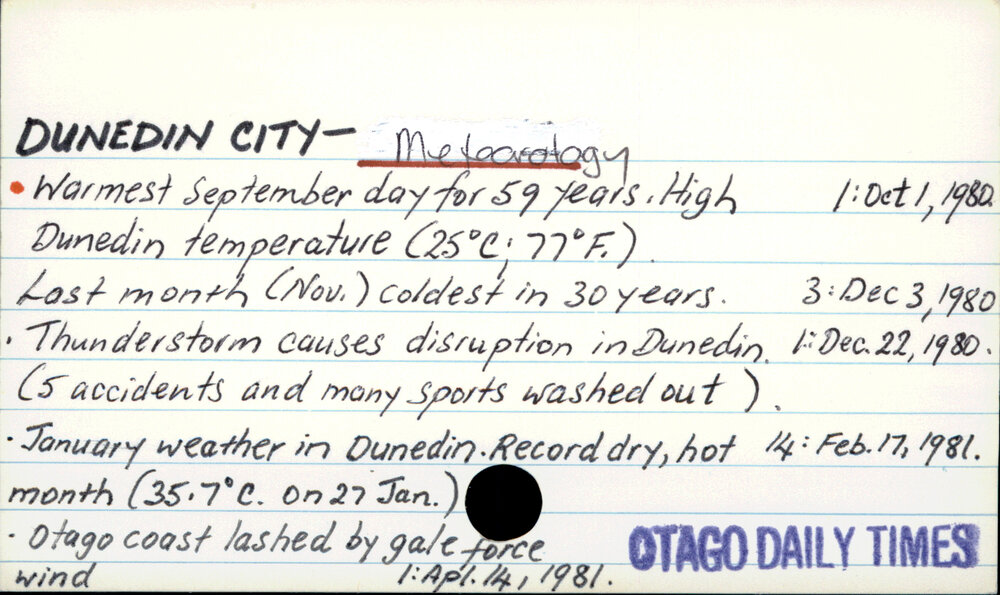 DUNEDIN CITY— Meteorology
• Warmest September day for 59 years. High 1: Oct 1, 1980.
Dunedin temperature (25°C; 77°F.).
Last month (Nov.) coldest in 30 years. 3: Dec 3, 1980
· Thunderstorm causes disruption in Dunedin. 1: Dec. 22, 1980.
(5 accidents and many sports washed out ).
· January weather in Dunedin. Record dry, hot 14: Feb. 17, 1981.
month (35.7°C. on 27 Jan.)
· Otago coast lashed by gale force
wind 1: Apl. 14, 1981.
OTAGO DAILY TIMES